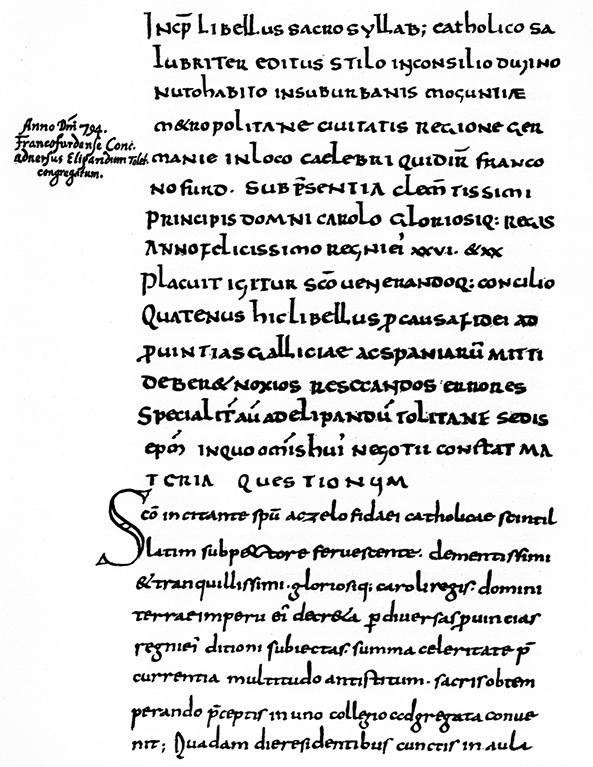 Incp̄ libellus sacrosyllab; catholico sa
lubriter editus stilo inconsilio diuino
nutohabito insuburbanis moguntiae
Anno Dm̄i 794.
Francofurdense Conc.
aduersus Elipandum Tolet.
congregatum.
m&ropolitane ciuitatis regione ger
manie inloco caelebri quidir̄ franco
nofurd. subp̄sentia clem̄tissimi
principis domni carolo gloriosiq: regis
annofelicissimo regniei' xxvi. &xx
placuit igitur sc̄o uenerandoq: concilio
quatenus hiclibellus ꝓcausafidei ad
ꝓuintias galliciae acspaniarū mitti
deber& noxios resecandos errores
specialit̄ aū adelipandū tolitane sedis
ep̄m inquo om̄is hui' negotii constat ma
teria questionum
Sc̄o incitante sp̄u aczelo fidaei catholicae scintil
latim subpectore feruescente. clementissimi
&tranquillissimi. gloriosiq; caroliregis. domini
terrae imperii ei' decr&a ꝑdiuersasꝓuincias
regniei' ditioni subiectas. summa celeritate p̄
currentia multitudo antistitum. sacris obtem
perando p̄ceptis in uno collegio cc̄gregata conue
nit; Quadam dieresidentibus cunctis in aula